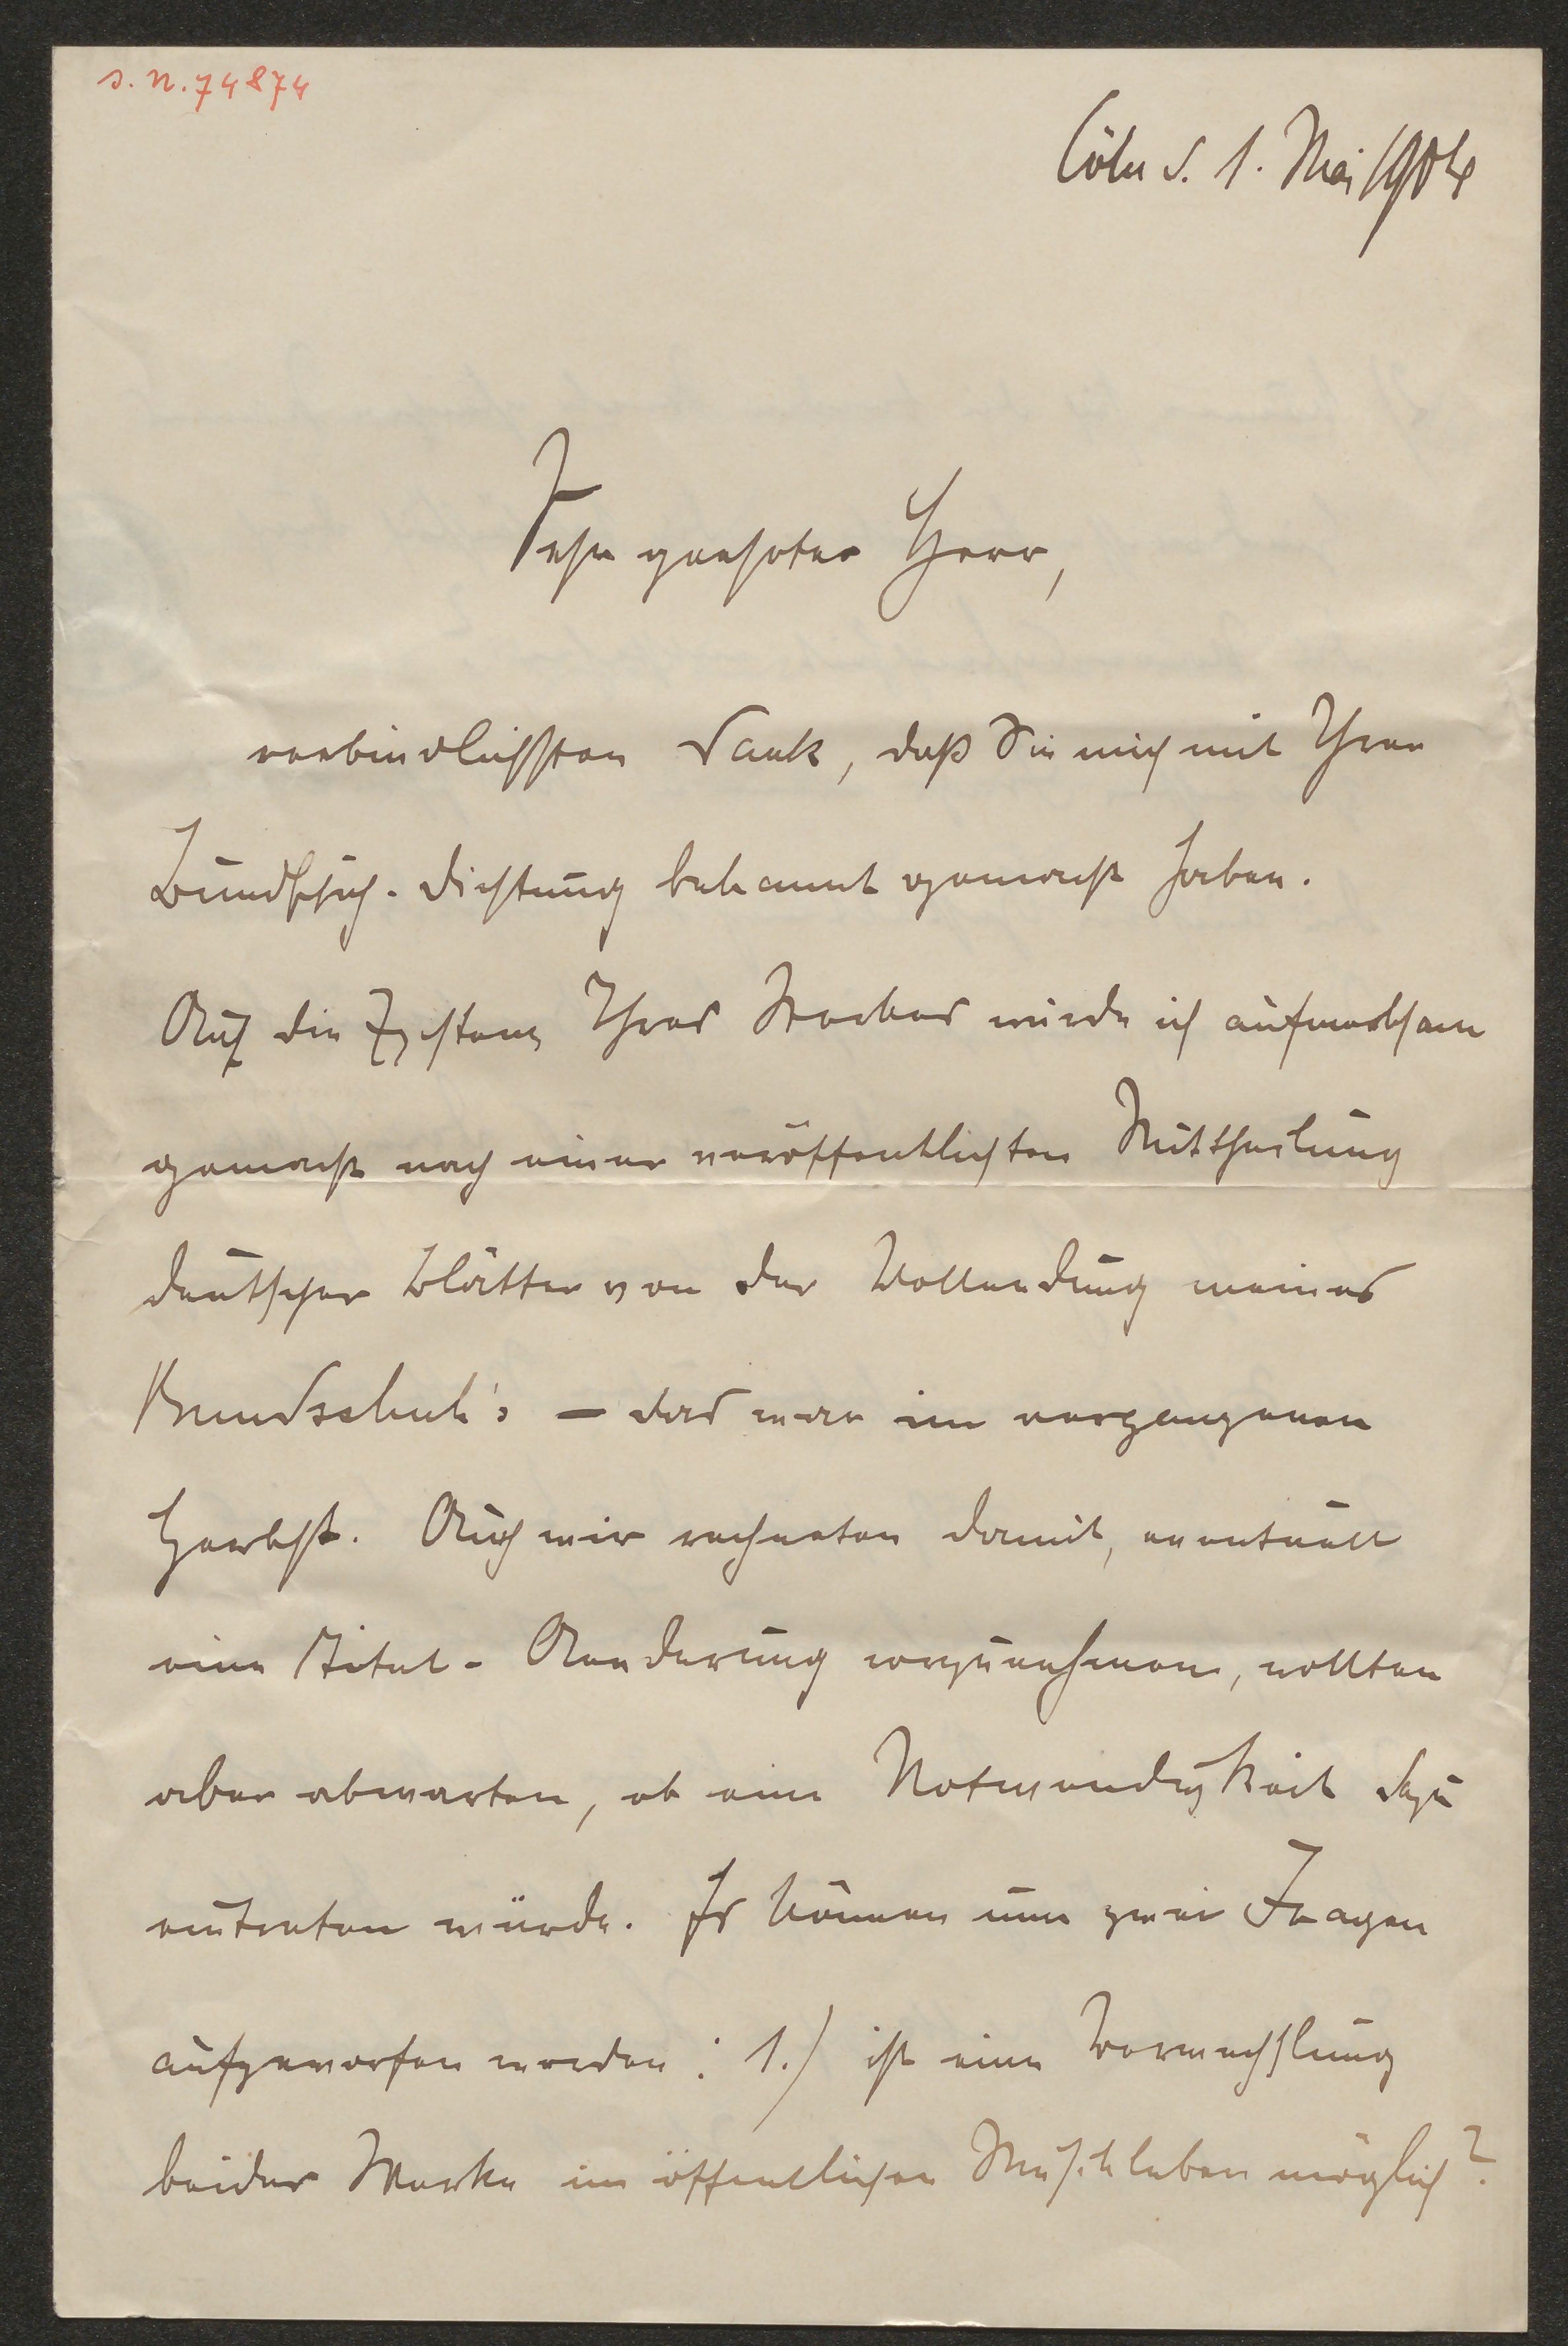 s. n. 74874
Cöln d. 1. Mai 1904
Sehr geehrter Herr,
verbindlichsten Dank, daß Sie mich mit Ihrer
Bundschuh-Dichtung bekannt gemacht haben.
Auf die Existenz Ihres Werkes wurde ich aufmerksam
gemacht nach einer veröffentlichten Mittheilung
deutscher Blätter von der Vollendung meines
Bundschuh's — das war im vergangenen
Herbst. Auch wir rechneten damit, eventuell
eine Titel-Aenderung vorzunehmen, wollten
aber abwarten, ob eine Notwendigkeit dazu
eintreten würde. Es können nun zwei Fragen
aufgeworfen werden: 1.) ist eine Verwechslung
beider Werke im öffentlichen Musikleben möglich?